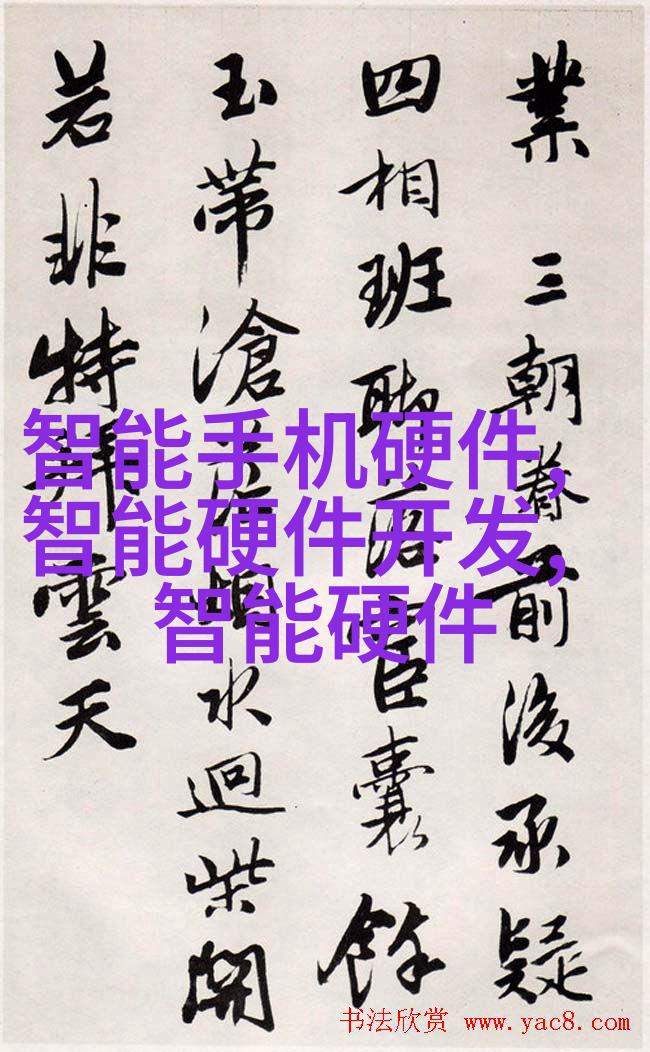 業 三朝眷前後承疑
四相班聯臣囊餘
玉帶滄水迴柴開
若非特拜雲天
智能手机硬件,
智能硬件开发,
智能硬件
书法欣赏 www.yac8.com